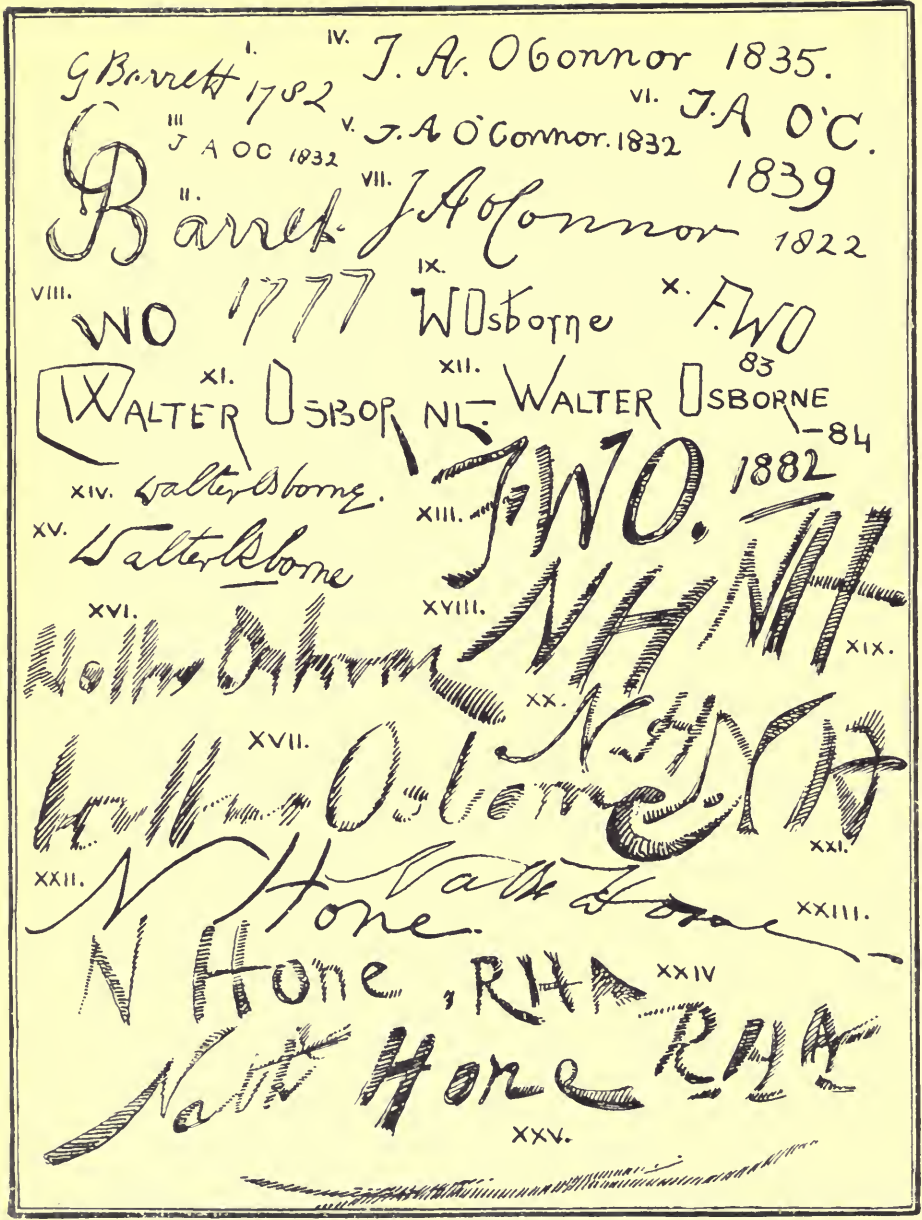 I.
G Barrett 1782
IV.
J. A. O'Connor 1835.
III
J A OC 1832
V.
J. A O'Connor. 1832
VI.
J.A O'C.
1839
II.
G Barret
VII.
J A O'Connor 1822
VIII.
WO 1777
IX.
WOsborne
X.
F.WO
83
XI.
WALTER OSBORNE
XII.
WALTER OSBORNE
-84
XIV.
Walter Osborne.
XIII.
F.WO.
1882
XV.
Walter Osborne
XVI.
Walter Osborne
XVIII.
NH
NH
XIX.
XVII.
Walter Osborne
XX.
NH
NH
XXI.
XXII.
N Hone.
Nath Hone
XXIII.
N Hone, RHA
XXIV
Nath Hone RHA
XXV.